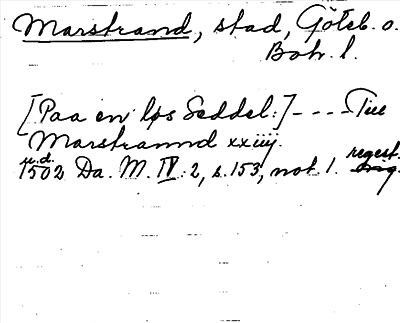 Marstrand, stad, Göteb. o.
Boh. l.
[Paa en løs Seddel:] - - - - Till
Marstrannd xxiiij.
u.d.
1502 Da. M. IV: 2, s. 153, not 1. regest.